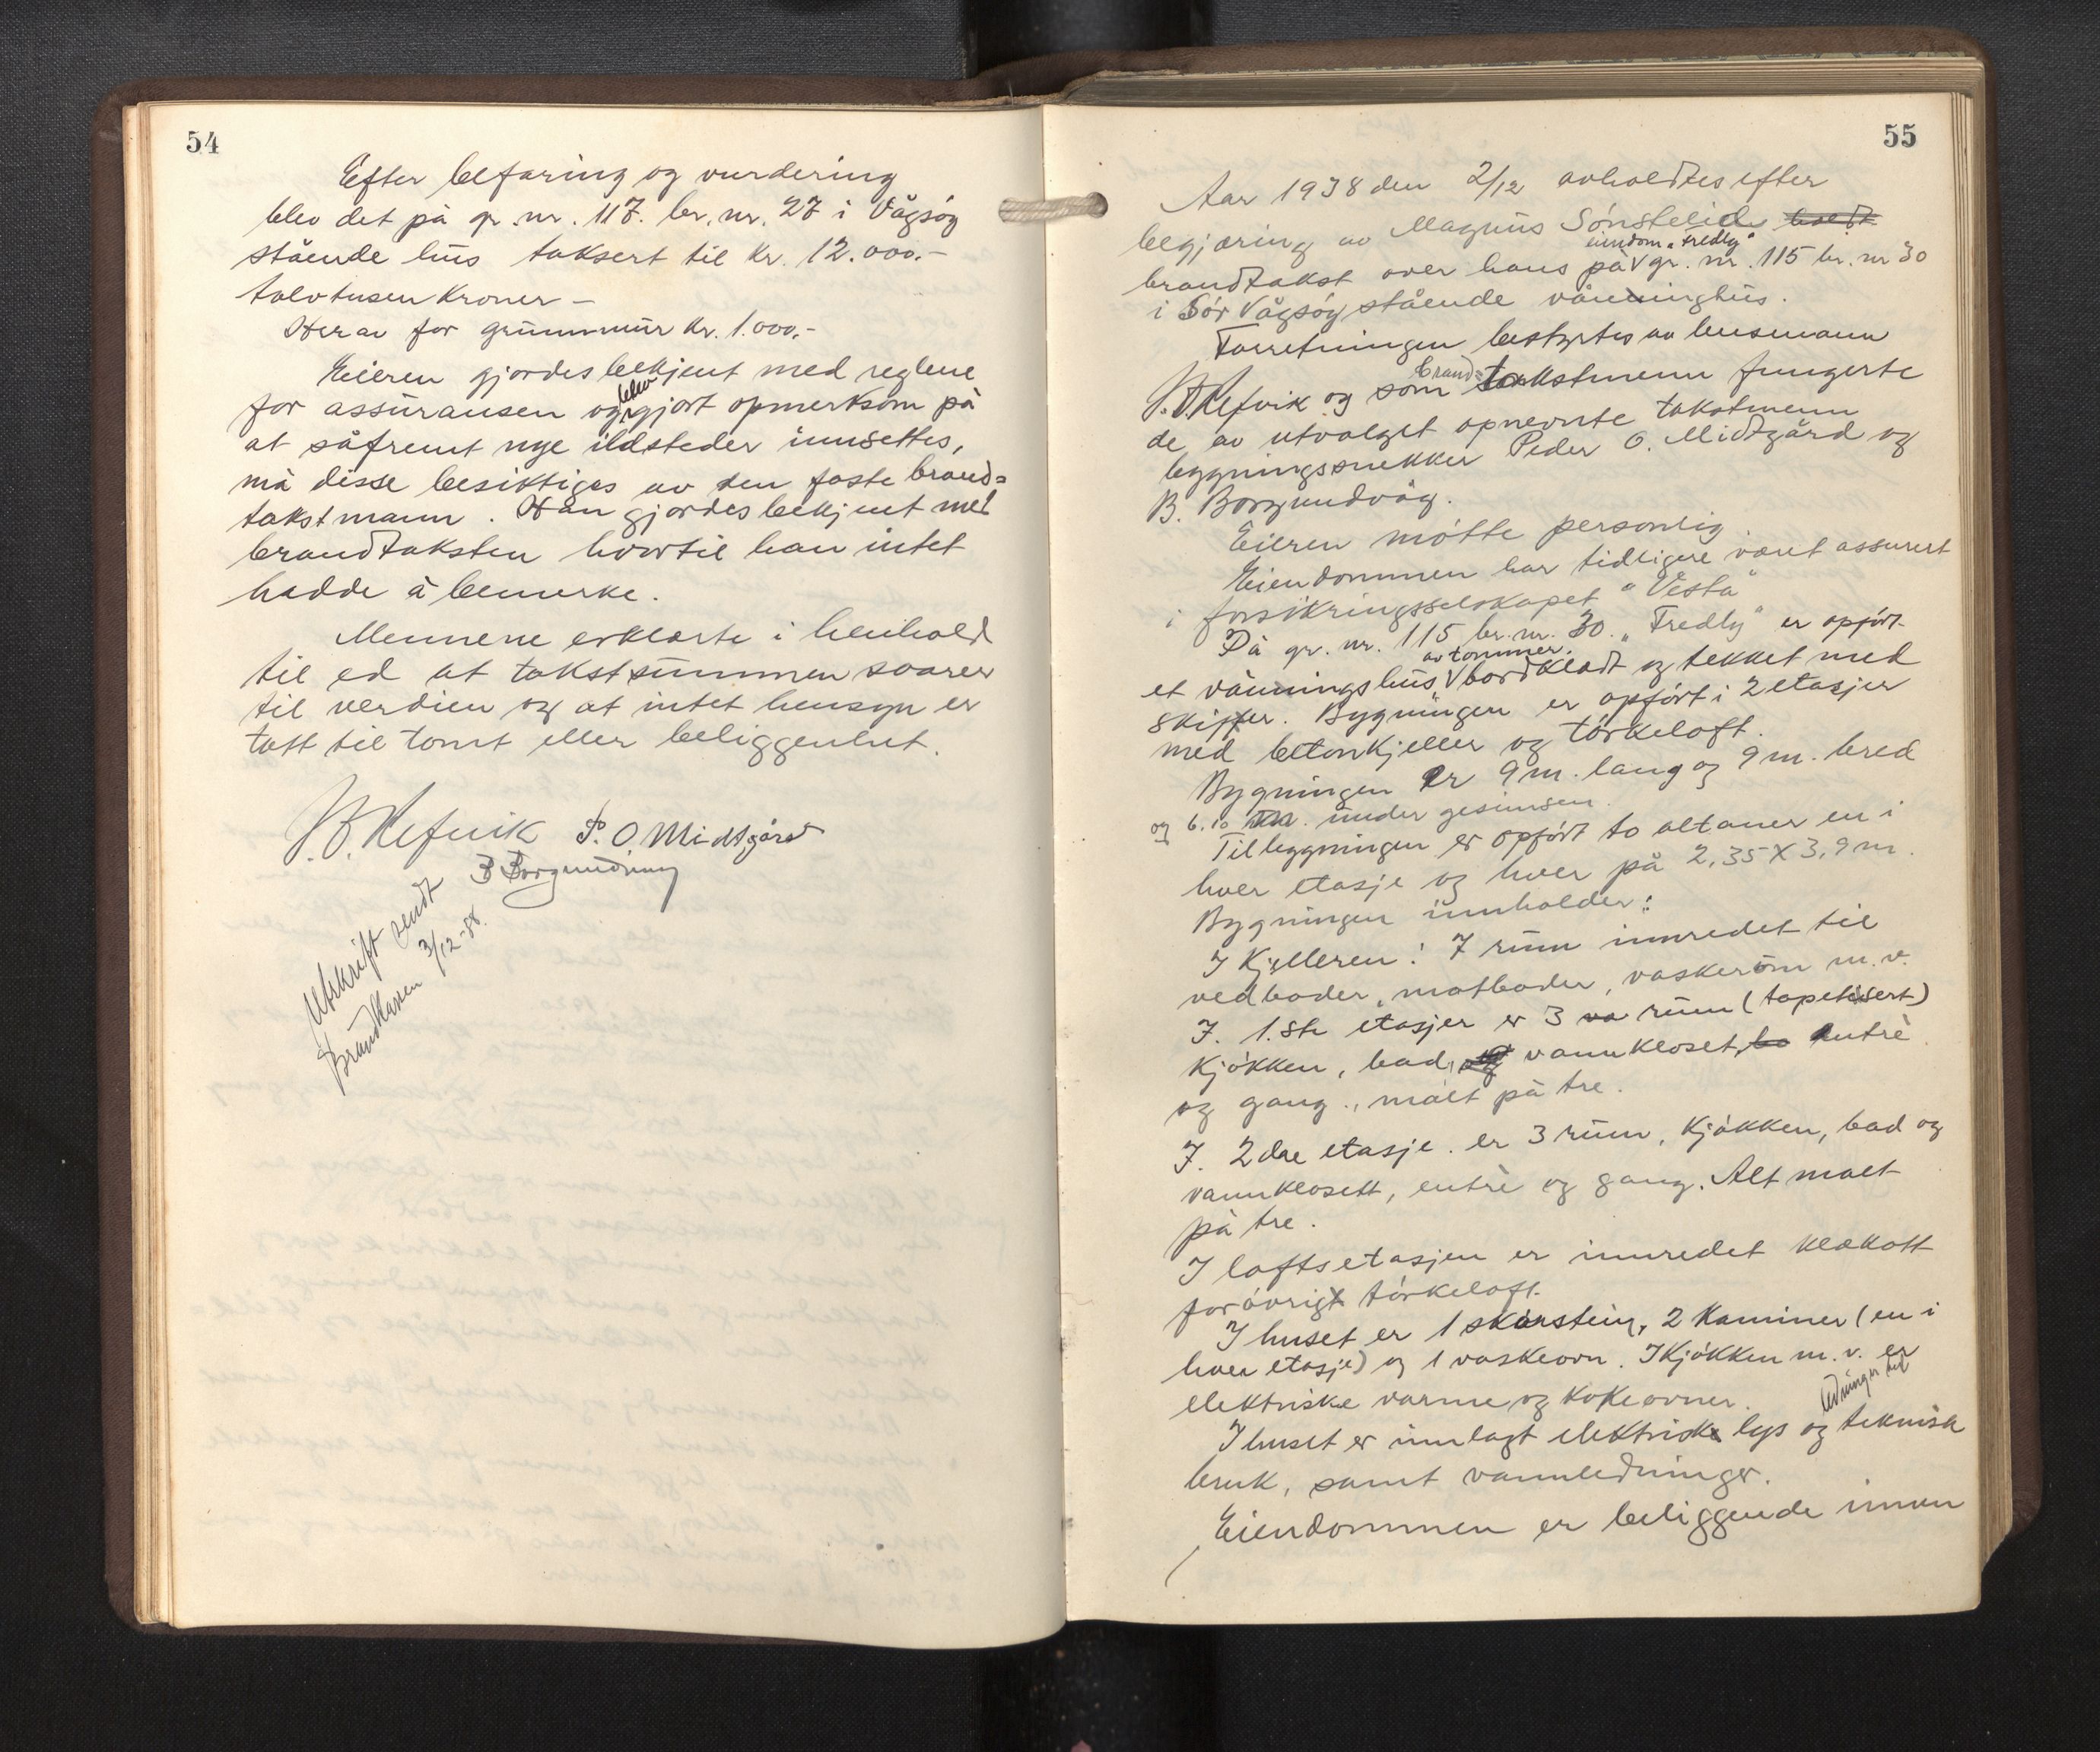 54
Efter befaring og vurdering
blev det på gr. nr. 117. br. nr. 27 i Vågsøy
stående hus taksert til kr. 12.000.-
tolvtusen kroner -
Herav for grunnmur kr. 1.000.-
Eieren gjordes bekjent med reglene
for assuransen og blev gjort opmerksom på
at såfremt nye ildsteder innsettes,
må disse besiktiges av den faste brand=
takstmann. Han gjordes bekjent med
brandtaksten hvortil han intet
hadde å bemerke.
Mennene erklærte i henhold
til ed at takstsummen svarer
til verdien og at intet hensyn er
tatt til tomt eller beliggenhet.
P. O Midtgård
B Borgundvåg
Utskrift sendt
Brandkassen 3/12-38.
55
Aar 1938 den 2/12 avholdtes efter
begjæring av Magnus Sønstelid holdt
brandtakst over hans på eiendom „Fredly" gr. nr. 115 br. nr 30
i Sør Vågsøy stående våninghus.
Forretningen bestyrtes av lensmann
Refvik og som brand= takstmenn fungerte
de av utvalget opnevnte takstmenn
bygningssnekker Peder O. Midtgård og
B. Borgundvåg.
Eieren møtte personlig.
Eiendommen har tidligere været assurert
i forsikringsselskapet "Vesta"
På gr. nr. 115 br. nr. 30. „Fredly" er opført
et våningshus, av tømmer, bordklædt og tekket med
skiffer. Bygningen er opført i 2 etasjer
med betonkjeller og tørkeloft.
Bygningen er 9 m. lang og 9 m. bred
og 6.10 m. under gesimsen.
Til bygningen er opført to altaner en i
hver etasje og hver på 2,35 X 3,9 m.
Bygningen innholder:
I Kjelleren: 7 rum innredet til
vedboder, matboder, vaskerom m.v.
I. 1.ste etasjer er 3 va rum (tapetsert)
Kjøkken, bad, og vannkloset, to entrè
og gang., malt på tre.
I. 2dre etasje. er 3 rum, Kjøkken, bad og
vannklosett, entrè og gang. Alt malt
på tre.
I loftsetasjen er innredet klækott
forøvrigt tørkeloft.
I huset er 1 skorstein, 2 Kaminer (en i
hver etasje) og 1 vaskeovn. I Kjøkken m.v. er
elektriske varme og kokeovner.
I huset er innlagt elektrisk lys og ledninger til teknisk
bruk, samt vannledninger.
Eiendommen er beliggende innen